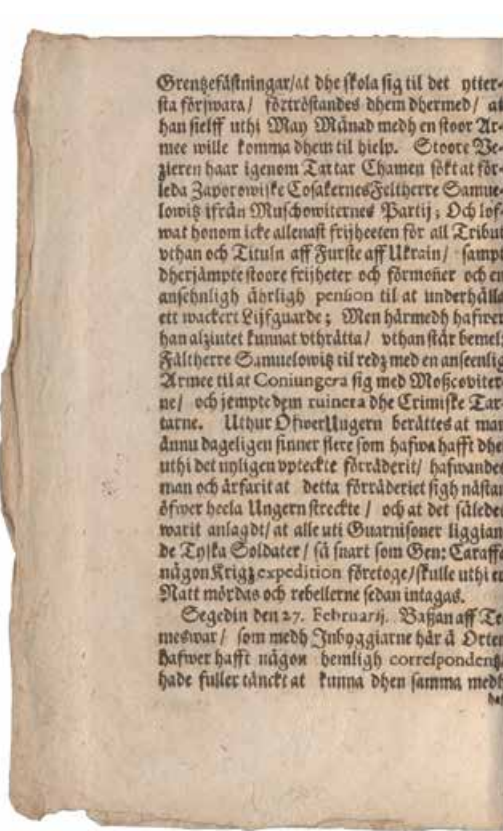 Grentzefästningar/at dhe skola sig til det ytter-
sta förswara/ förtröstandes dhem dhermed/ at
han sielff uthi May Månad medh en stoor Ar-
mee wille komma dhem til hielp. Stoore Ve-
zieren haar igenom Tartar Chamen sökt at för-
leda Zaporowiske CosakernesFeltherre Samue-
lowitz ifrån Muschowiternes Partij; Och lof-
wat honom icke allenast frijheeten för all Tribut
vthan och Tituln aff Furste aff Ukrain/ sampt
dherjämpte stoore frijheter och förmoner och en
ansehnligh åhrligh pension til at underhålla
ett wackert Lijfguarde; Men härmedh hafwer
han alzintet kunnat vthrätta/ vthan står bemel:
Fältherre Samuelowitz til redz med en anseenlig
Armee til at Coniungera sig med Moßcoviter-
ne/ och jempte dem ruinera dhe Crimiske Tar-
tarne. Uthur ÖfwerUngern berättes at man
ännu dageligen finner flere som hafwa hafft dhel
uthi det nyligen vpteckte förräderit/ hafwandes
man och ärfarit at detta förräderiet sigh nästan
öfwer heela Ungern streckte/ och at det således
warit anlagdt/ at alle uti Guarnisoner liggian-
de Tyska Soldater/ så snart som Gen: Caraffa
någon Krigz expedition företoge/skulle uthi en
Natt mördas och rebellerne sedan intagas.
Segedin den 27. Februarij. Baßan aff Te-
meswar/ som medh Inbyggiarne här å Orten
hafwer hafft någon hemligh correspondentz
hade fuller tänckt at kunna dhen samma medh